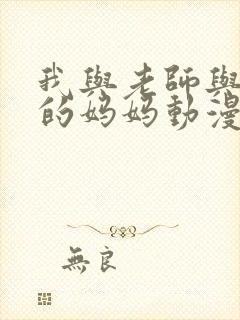 我與老師與
的媽媽動漫
無良